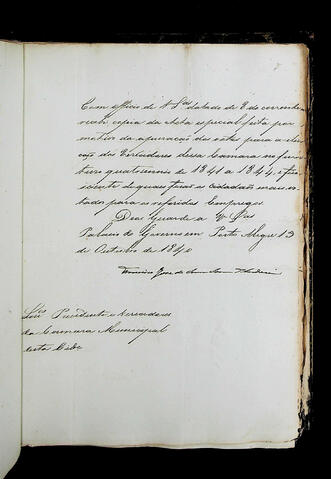 Com officio de V Sªs datado de 8 do corrente
recebi copia da Acta especial feita por
motivo da apuração dos votos para a elei
ção dos Vereadores dessa Camara no fu
turo quatriennio de 1841 a 1844, e fico
sciente de quaes sejão os Cidadãos mais vo
tados para os referidos Empregos.
Deos Guarde a V Sªs
Palacio do Governo em Porto Alegre 13
de Outubro de 1840
Snrˢ Presidente e Vereadores
da Camara Municipal
desta Cidᵉ